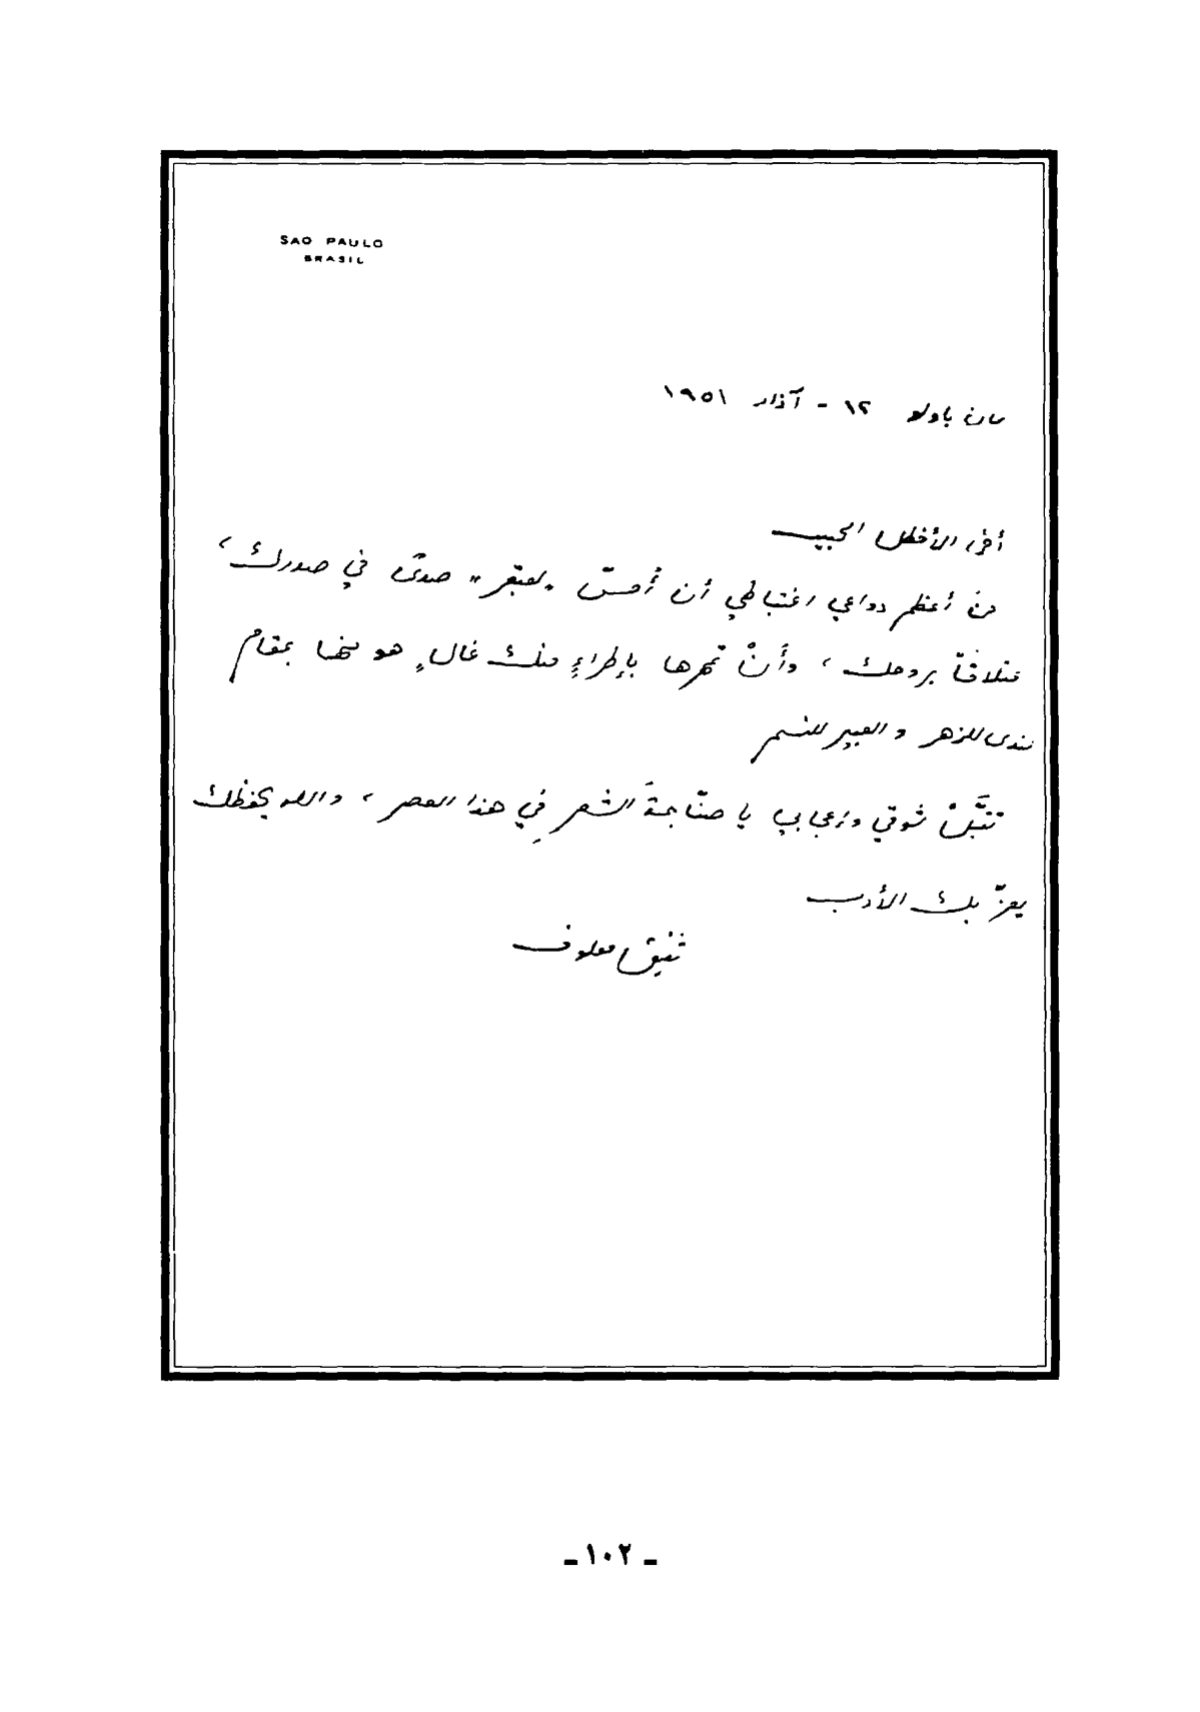 SAO PAULO
BRASIL
سان باولو ١٢ - آذار ١٩٥١
أخي الأخطل الحبيب
من أعظم دواعي اغتباطي أن أُحسّ "لعبقر" صدىً في صدرك،
بروحك، وأنْ تمهرها بإطراءٍ منك غالٍ هو منها بمقام
الندى للزهر والعبير للنسم
تقبَّلْ شوقي وإعجابي يا صنّاجةَ الشعر في هذا العصر، والله يحفظك
يعزّ بك الأدب
شفيق معلوف
- ١٠٢ -